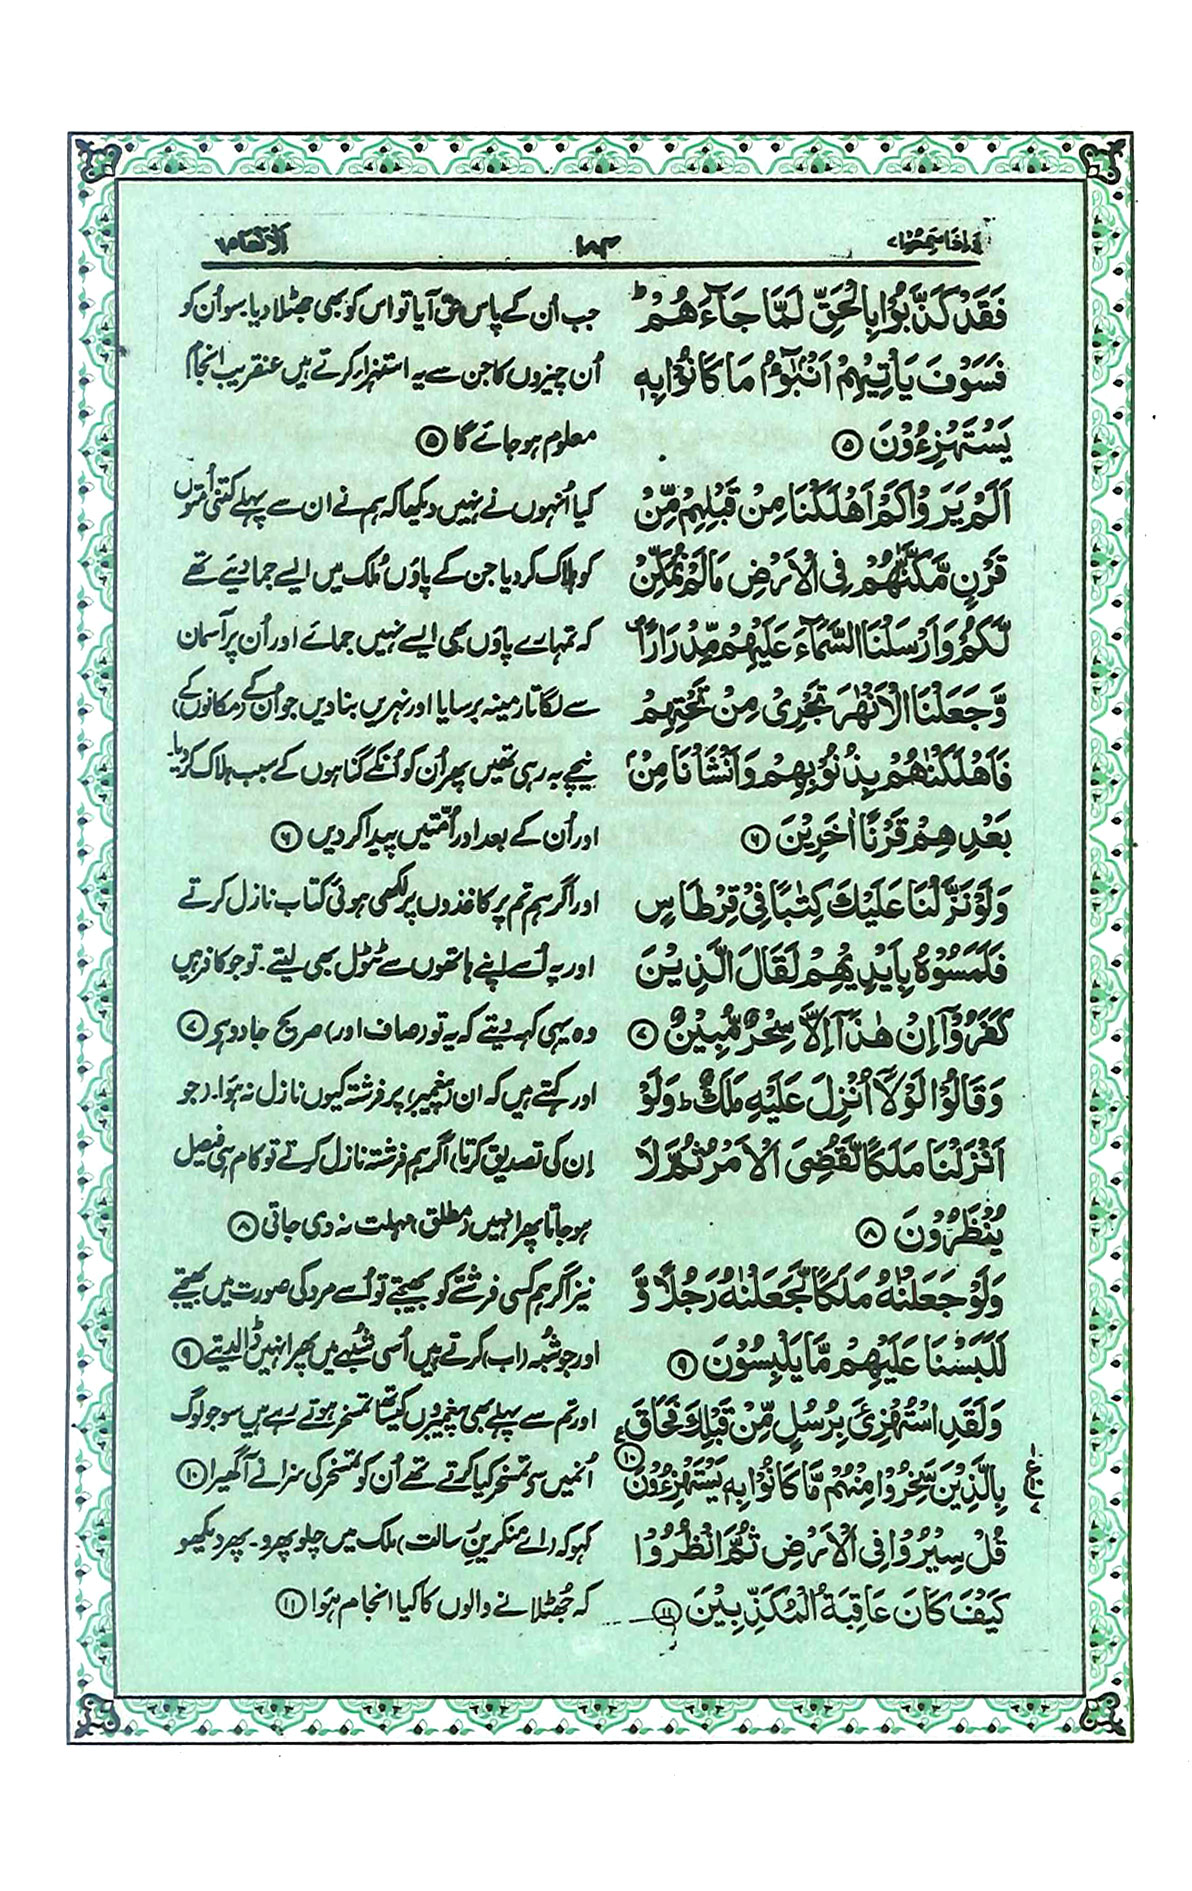 واذا سمعوا ٧
١٨٣
الانعام ٦
فَقَدْ كَذَّبُوْا بِالْحَقِّ لَمَّا جَآءَهُمْ ؕ
فَسَوْفَ يَاْتِيْهِمْ اَنْۢبٰٓؤُا مَا كَانُوْا بِهٖ
يَسْتَهْزِءُوْنَ ⑤
اَلَمْ يَرَوْا كَمْ اَهْلَكْنَا مِنْ قَبْلِهِمْ مِّنْ
قَرْنٍ مَّكَّنّٰهُمْ فِى الْاَرْضِ مَا لَمْ نُمَكِّنْ
لَّكُمْ وَاَرْسَلْنَا السَّمَآءَ عَلَيْهِمْ مِّدْرَارًا ۪
وَّجَعَلْنَا الْاَنْهٰرَ تَجْرِىْ مِنْ تَحْتِهِمْ
فَاَهْلَكْنٰهُمْ بِذُنُوْبِهِمْ وَاَنْشَاْنَا مِنْۢ
بَعْدِهِمْ قَرْنًا اٰخَرِيْنَ ⑥
وَلَوْ نَزَّلْنَا عَلَيْكَ كِتٰبًا فِىْ قِرْطَاسٍ
فَلَمَسُوْهُ بِاَيْدِيْهِمْ لَقَالَ الَّذِيْنَ
كَفَرُوْٓا اِنْ هٰذَآ اِلَّا سِحْرٌ مُّبِيْنٌ ⑦
وَقَالُوْا لَوْلَآ اُنْزِلَ عَلَيْهِ مَلَكٌ ؕ وَلَوْ
اَنْزَلْنَا مَلَكًا لَّقُضِىَ الْاَمْرُ ثُمَّ لَا
يُنْظَرُوْنَ ⑧
وَلَوْ جَعَلْنٰهُ مَلَكًا لَّجَعَلْنٰهُ رَجُلًا وَّ
لَلَبَسْنَا عَلَيْهِمْ مَّا يَلْبِسُوْنَ ⑨
وَلَقَدِ اسْتُهْزِئَ بِرُسُلٍ مِّنْ قَبْلِكَ فَحَاقَ
بِالَّذِيْنَ سَخِرُوْا مِنْهُمْ مَّا كَانُوْا بِهٖ يَسْتَهْزِءُوْنَ ⑩
قُلْ سِيْرُوْا فِى الْاَرْضِ ثُمَّ انْظُرُوْا
كَيْفَ كَانَ عَاقِبَةُ الْمُكَذِّبِيْنَ ⑪
جب اُن کے پاس حق آیا تو اس کو بھی جھٹلا دیا۔ سو اُن کو
اُن چیزوں کا جن سے یہ استہزاء کرتے ہیں عنقریب انجام
معلوم ہو جائے گا ⑤
کیا اُنہوں نے نہیں دیکھا کہ ہم نے ان سے پہلے کتنی اُمتوں
کو ہلاک کر دیا جن کے پاؤں مُلک میں ایسے جما دیئے تھے
کہ تمہارے پاؤں بھی ایسے نہیں جمائے اور اُن پر آسمان
سے لگاتار مینہ برسایا اور نہریں بنا دیں جو اُن کے (مکانوں کے)
نیچے بہ رہی تھیں پھر اُن کو اُنکے گناہوں کے سبب ہلاک کر دیا۔
اور اُن کے بعد اور اُمّتیں پیدا کر دیں ⑥
اور اگر ہم تم پر کاغذوں پر لکھی ہوئی کتاب نازل کرتے
اور یہ اُسے اپنے ہاتھوں سے ٹٹول بھی لیتے۔ تو جو کافر ہیں
وہ یہی کہہ دیتے کہ یہ تو (صاف اور) صریح جادو ہے ⑦
اور کہتے ہیں کہ ان (پیغمبر) پر فرشتہ کیوں نازل نہ ہوا۔ (جو
اِن کی تصدیق کرتا) اگر ہم فرشتہ نازل کرتے تو کام ہی فیصل
ہو جاتا پھر انہیں (مطلق) مہلت نہ دی جاتی ⑧
نیز اگر ہم کسی فرشتے کو بھیجتے تو اُسے مرد کی صورت میں بھیجتے
اور جو شبہ (اب) کرتے ہیں اُسی شُبہے میں پھر انہیں ڈال دیتے ⑨
اور تم سے پہلے بھی پیغمبروں کیساتھ تمسخر ہوتے رہے ہیں سو جو لوگ
اُنمیں سے تمسخر کیا کرتے تھے اُن کو تمسخر کی سزا نے آگھیرا ⑩
کہو کہ (اے منکرینِ رسالت) ملک میں چلو پھرو۔ پھر دیکھو
کہ جھٹلانے والوں کا کیا انجام ہوا ⑪